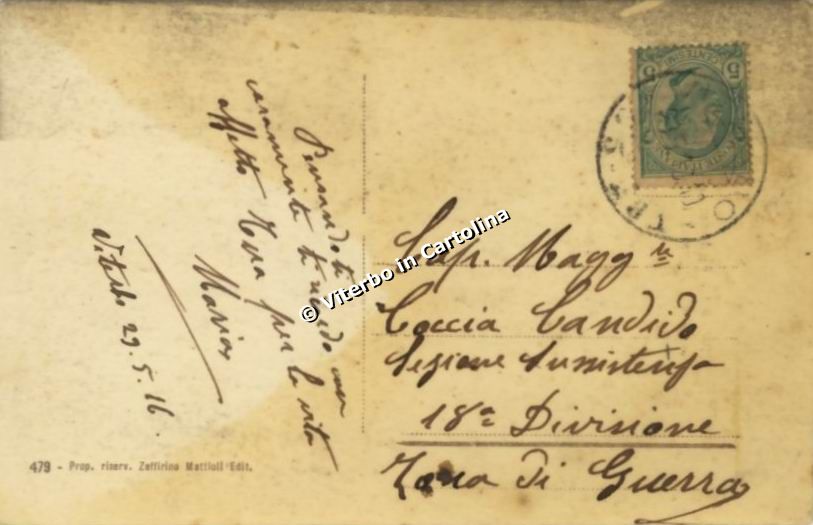 Pensandoti
caramente ti ricordo con
affetto Tua per la vita
Maria
Viterbo 29.5.16.
Cap. Magg re
Coccia Candido
Sezione Sussistenza
18a Divisione
Zona di Guerra
5 5
CENTESIMI
© Viterbo in Cartolina
479 - Prop. riserv. Zeffirino Mattioli Edit.